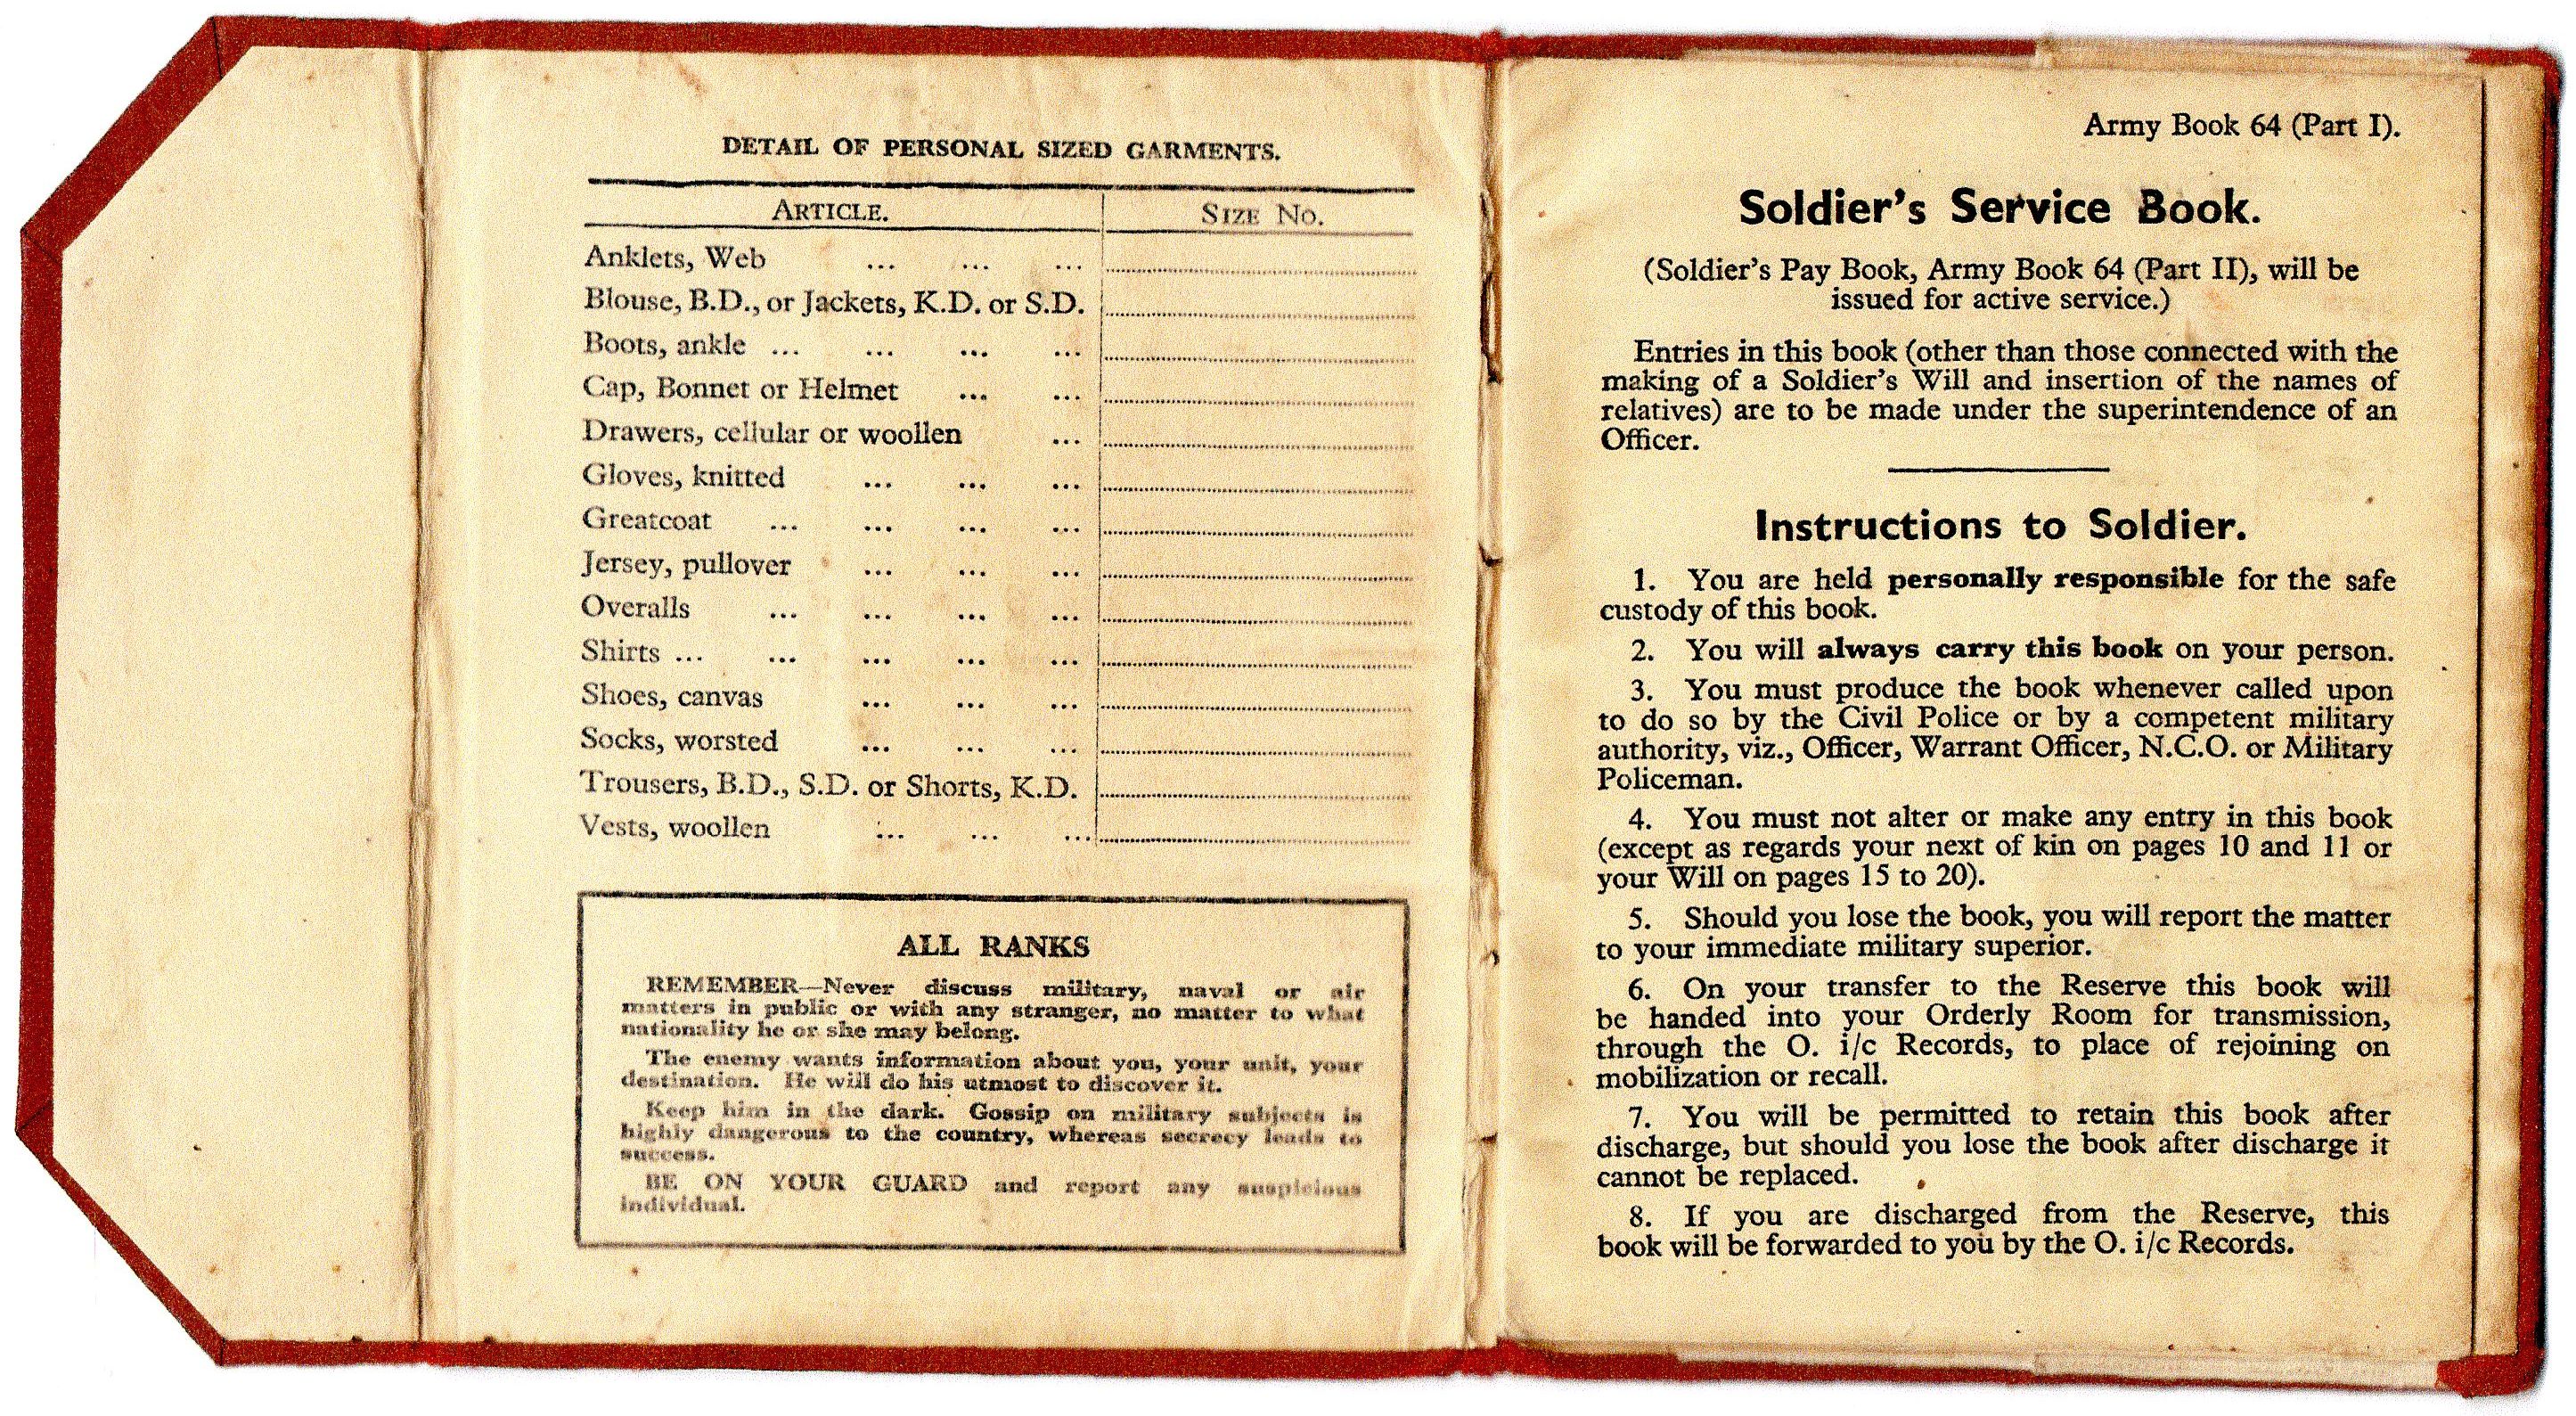 DETAIL OF PERSONAL SIZED GARMENTS.
ARTICLE. SIZE No.
Anklets, Web ... ... ...
Blouse, B.D., or Jackets, K.D. or S.D.
Boots, ankle ... ... ... ...
Cap, Bonnet or Helmet ... ...
Drawers, cellular or woollen ...
Gloves, knitted ... ... ...
Greatcoat ... ... ... ...
Jersey, pullover ... ... ...
Overalls ... ... ... ...
Shirts ... ... ... ... ...
Shoes, canvas ... ... ...
Socks, worsted ... ... ...
Trousers, B.D., S.D. or Shorts, K.D.
Vests, woollen ... ... ...
ALL RANKS
REMEMBER—Never discuss military, naval or air
matters in public or with any stranger, no matter to what
nationality he or she may belong.
The enemy wants information about you, your unit, your
destination. He will do his utmost to discover it.
Keep him in the dark. Gossip on military subjects is
highly dangerous to the country, whereas secrecy leads to
success.
BE ON YOUR GUARD and report any suspicious
individual.
Army Book 64 (Part I).
Soldier's Service Book.
(Soldier's Pay Book, Army Book 64 (Part II), will be
issued for active service.)
Entries in this book (other than those connected with the
making of a Soldier's Will and insertion of the names of
relatives) are to be made under the superintendence of an
Officer.
Instructions to Soldier.
1. You are held personally responsible for the safe
custody of this book.
2. You will always carry this book on your person.
3. You must produce the book whenever called upon
to do so by the Civil Police or by a competent military
authority, viz., Officer, Warrant Officer, N.C.O. or Military
Policeman.
4. You must not alter or make any entry in this book
(except as regards your next of kin on pages 10 and 11 or
your Will on pages 15 to 20).
5. Should you lose the book, you will report the matter
to your immediate military superior.
6. On your transfer to the Reserve this book will
be handed into your Orderly Room for transmission,
through the O. i/c Records, to place of rejoining on
mobilization or recall.
7. You will be permitted to retain this book after
discharge, but should you lose the book after discharge it
cannot be replaced.
8. If you are discharged from the Reserve, this
book will be forwarded to you by the O. i/c Records.